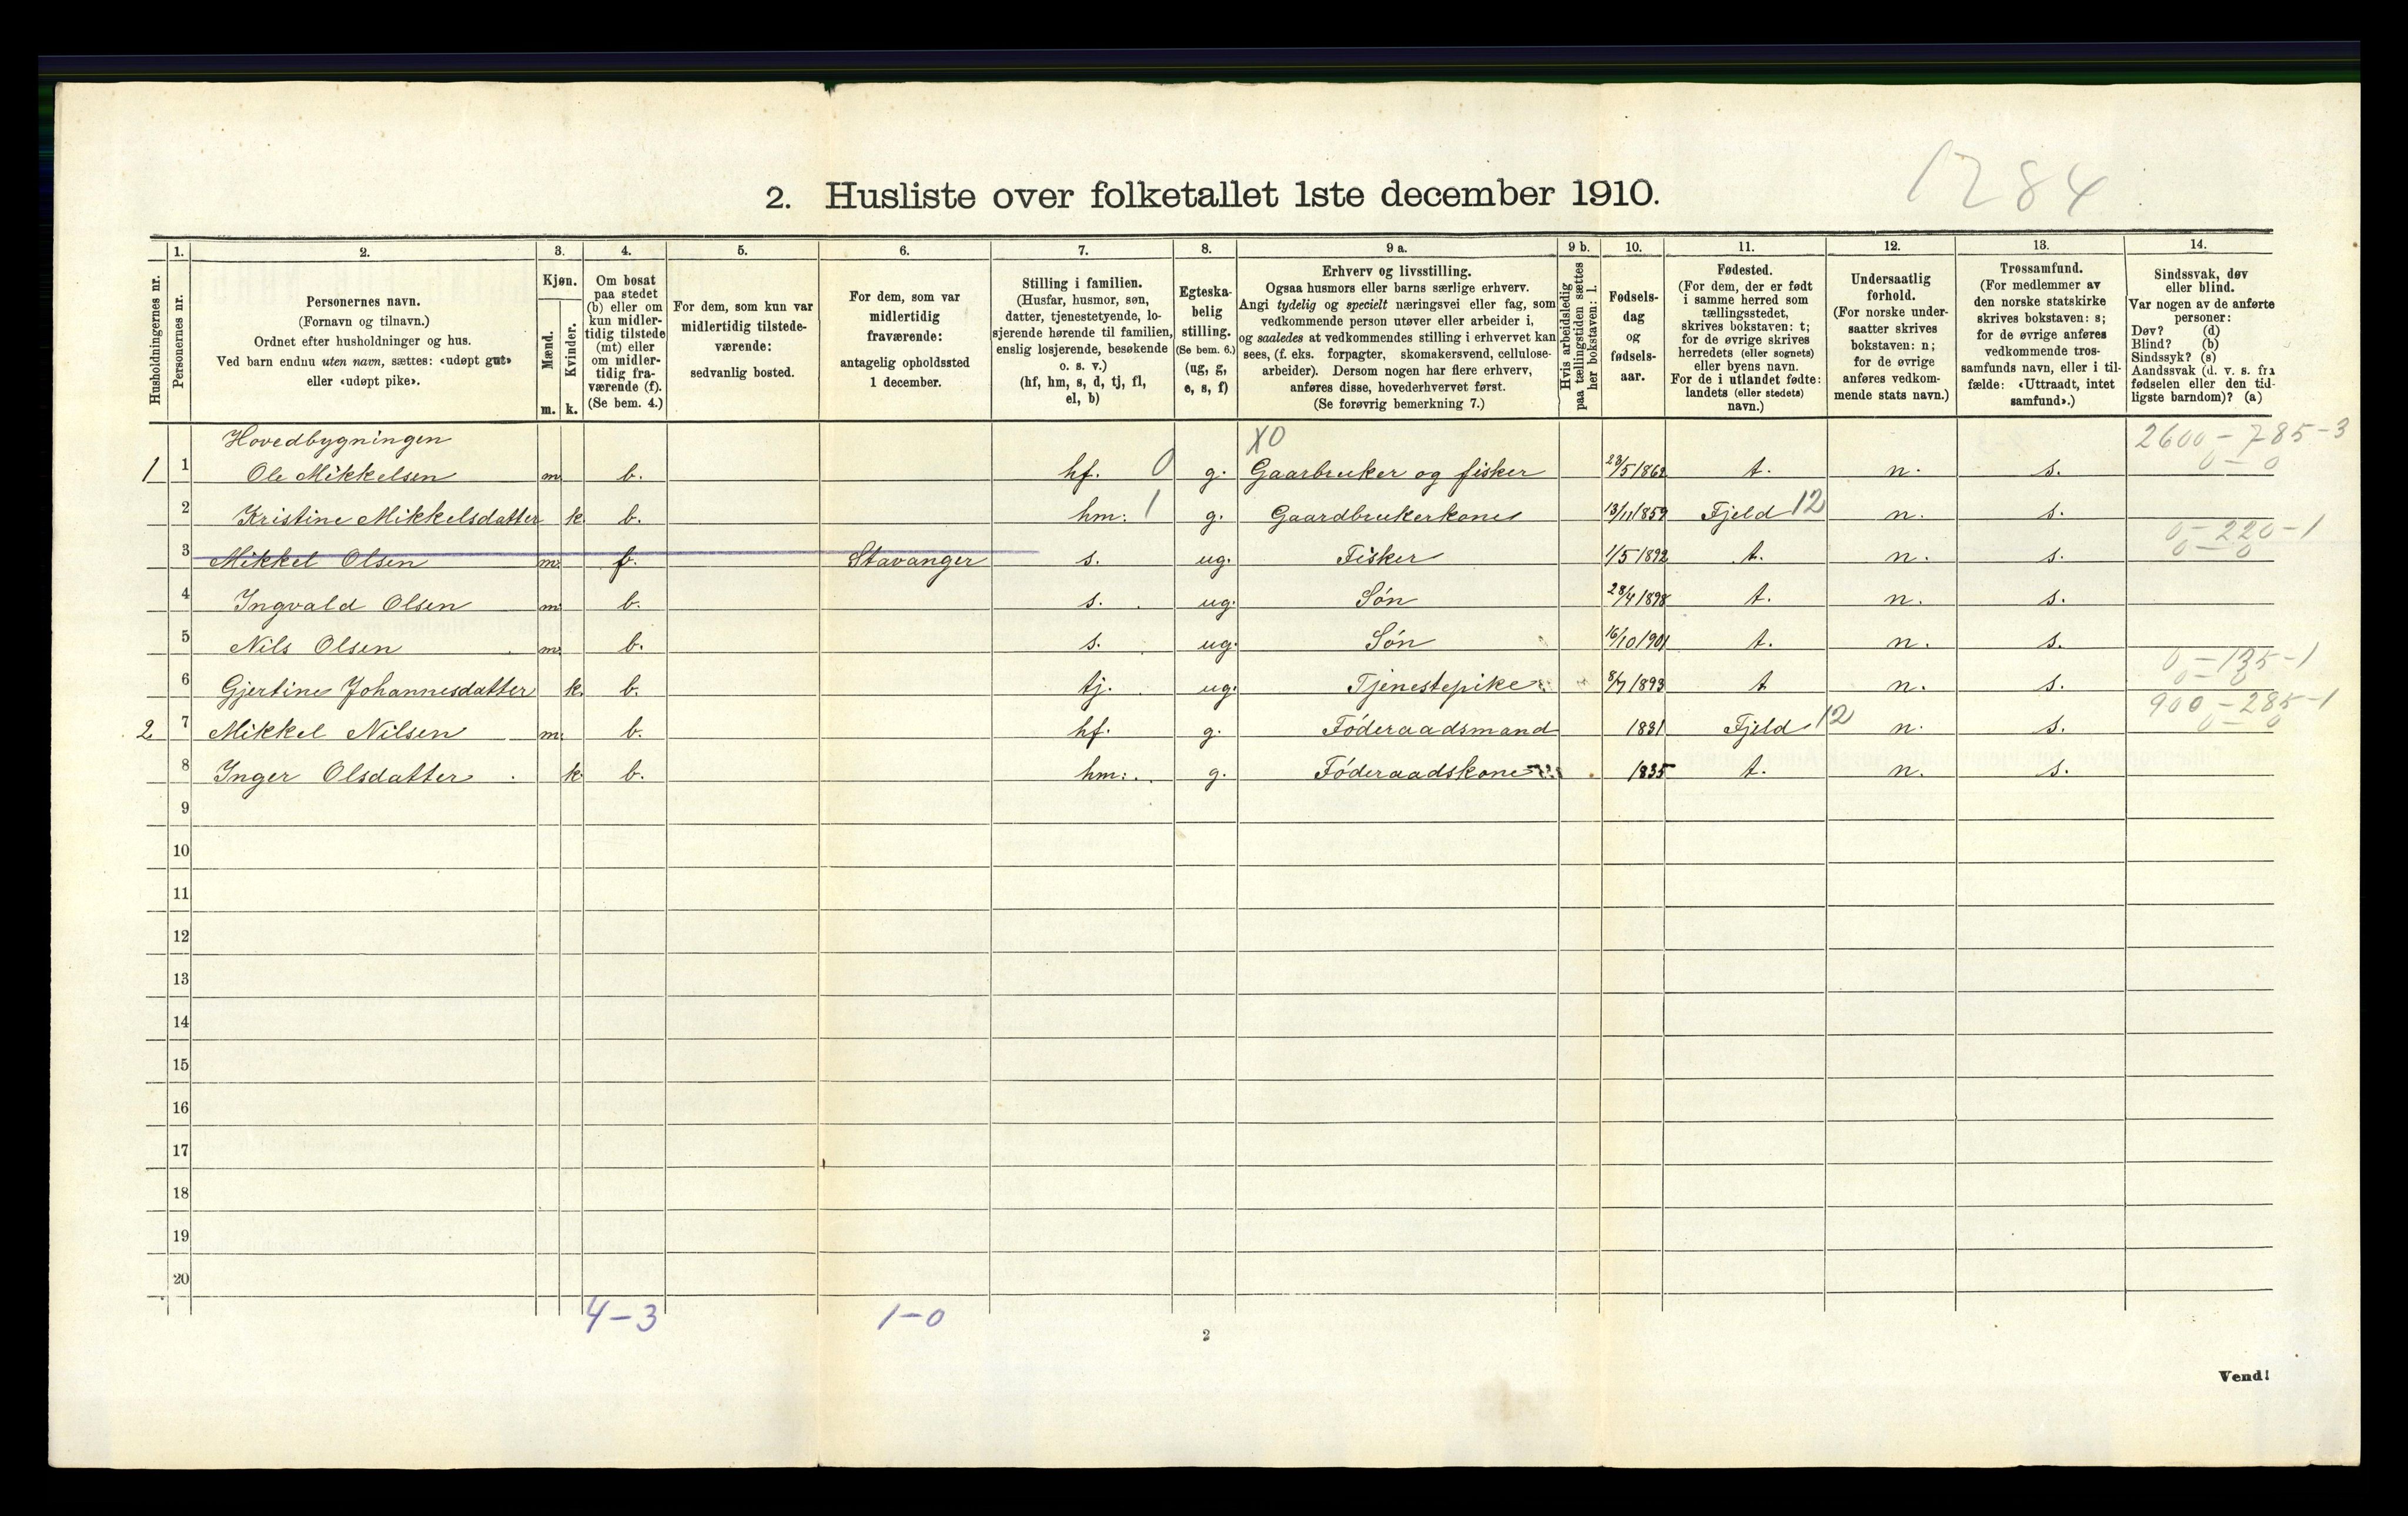 1284
2. Husliste over folketallet 1ste december 1910.
Husholdningernes nr.
1.
Personernes nr.
2.
Personernes navn.
(Fornavn og tilnavn.)
Ordnet efter husholdninger og hus.
Ved barn endnu uten navn, sættes: «udøpt gut»
eller «udøpt pike».
3.
Kjøn.
Mænd.
Kvinder.
m. k.
4.
Om bosat
paa stedet
(b) eller om
kun midler-
tidig tilstede
(mt) eller
om midler-
tidig fra-
værende (f).
(Se bem. 4.)
5.
For dem, som kun var
midlertidig tilstede-
værende:
sedvanlig bosted.
6.
For dem, som var
midlertidig
fraværende:
antagelig opholdssted
1 december.
7.
Stilling i familien.
(Husfar, husmor, søn,
datter, tjenestetyende, lo-
sjerende hørende til familien,
enslig losjerende, besøkende
o. s. v.)
(hf, hm, s, d, tj, fl,
el, b)
8.
Egteska-
belig
stilling.
(Se bem. 6.)
(ug, g,
e, s, f)
9 a.
Erhverv og livsstilling.
Ogsaa husmors eller barns særlige erhverv.
Angi tydelig og specielt næringsvei eller fag, som
vedkommende person utøver eller arbeider i,
og saaledes at vedkommendes stilling i erhvervet kan
sees, (f. eks. forpagter, skomakersvend, cellulose-
arbeider). Dersom nogen har flere erhverv,
anføres disse, hovederhvervet først.
(Se forøvrig bemerkning 7.)
9 b.
Hvis arbeidsledig
paa tællingstiden sættes
her bokstaven: l.
10.
Fødsels-
dag
og
fødsels-
aar.
11.
Fødested.
(For dem, der er født
i samme herred som
tællingsstedet,
skrives bokstaven: t;
for de øvrige skrives
herredets (eller sognets)
eller byens navn.
For de i utlandet fødte:
landets (eller stedets)
navn.)
12.
Undersaatlig
forhold.
(For norske under-
saatter skrives
bokstaven: n;
for de øvrige
anføres vedkom-
mende stats navn.)
13.
Trossamfund.
(For medlemmer av
den norske statskirke
skrives bokstaven: s;
for de øvrige anføres
vedkommende tros-
samfunds navn, eller i til-
fælde: «Uttraadt, intet
samfund».)
14.
Sindssvak, døv
eller blind.
Var nogen av de anførte
personer:
Døv? (d)
Blind? (b)
Sindssyk? (s)
Aandssvak (d. v. s. fra
fødselen eller den tid-
ligste barndom)? (a)
Hovedbygningen X0 2600 - 785 - 3
1 1 Ole Mikkelsen m. b. hf. 0 g. Gaarbruker og fisker 23/5 1862 t. n. s. 0 - 0
2 Kristine Mikkelsdatter k. b. hm. 1 g. Gaardbrukerkone 13/11 1859 Fjeld 12 n. s.
0 - 220 - 1
3 Mikkel Olsen m. f. Stavanger s. ug. Fisker 1/5 1892 t. n. s. 0 - 0
4 Ingvald Olsen m. b. s. ug. Søn 28/4 1898 t. n. s.
5 Nils Olsen m. b. s. ug. Søn 16/10 1901 t. n. s.
0 - 135 - 1
6 Gjertine Johannesdatter k. b. tj. ug. Tjenestepike 8/7 1893 t n. s. 0 - 0
900 - 285 - 1
2 7 Mikkel Nilsen m. b. hf. g. Føderaadsmand 1831 Fjeld 12 n. s. 0 - 0
8 Inger Olsdatter k. b. hm. g. Føderaadskone 1835 t. n. s.
9
10
11
12
13
14
15
16
17
18
19
20
4-3 1-0
2
Vend!